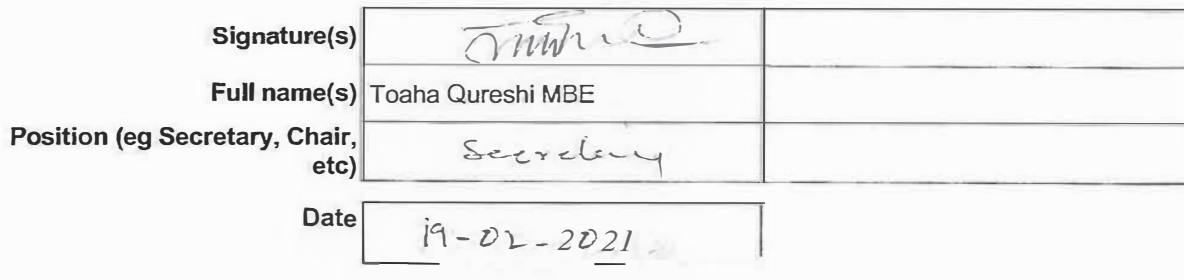 Signature(s)
Full name(s) Toaha Qureshi MBE
Position (eg Secretary, Chair,
etc) Secretary
Date 19-02-2021